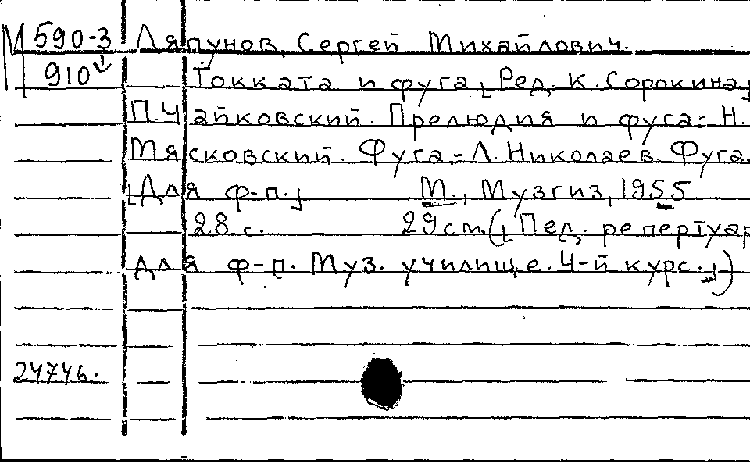 М 590-3 Ляпунов, Сергей Михайлович.
910 Токката и фуга. [Ред. К. Сорокина]
П. Чайковский. Прелюдия и фуга.- Н.
Мясковский. Фуга.- Л. Николаев. Фуга
[Для ф-п.] М., Музгиз, 1955
28 с. 29 cm. ([Пед. репертуар
для ф-п. Муз. училище. 4-й курс.])